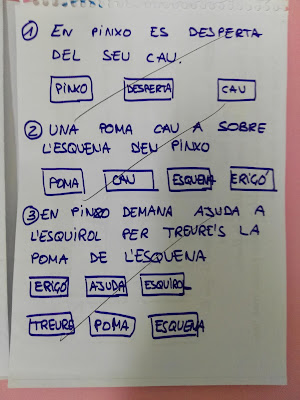 ① EN PINXO ES DESPERTA
DEL SEU CAU.
PINXO DESPERTA CAU
② UNA POMA CAU A SOBRE
L'ESQUENA D'EN PINXO
POMA CAU ESQUENA ERIÇÓ
③ EN PINXO DEMANA AJUDA A
L'ESQUIROL PER TREURE'S LA
POMA DE L'ESQUENA
ERIÇÓ AJUDA ESQUIROL
TREURE POMA ESQUENA